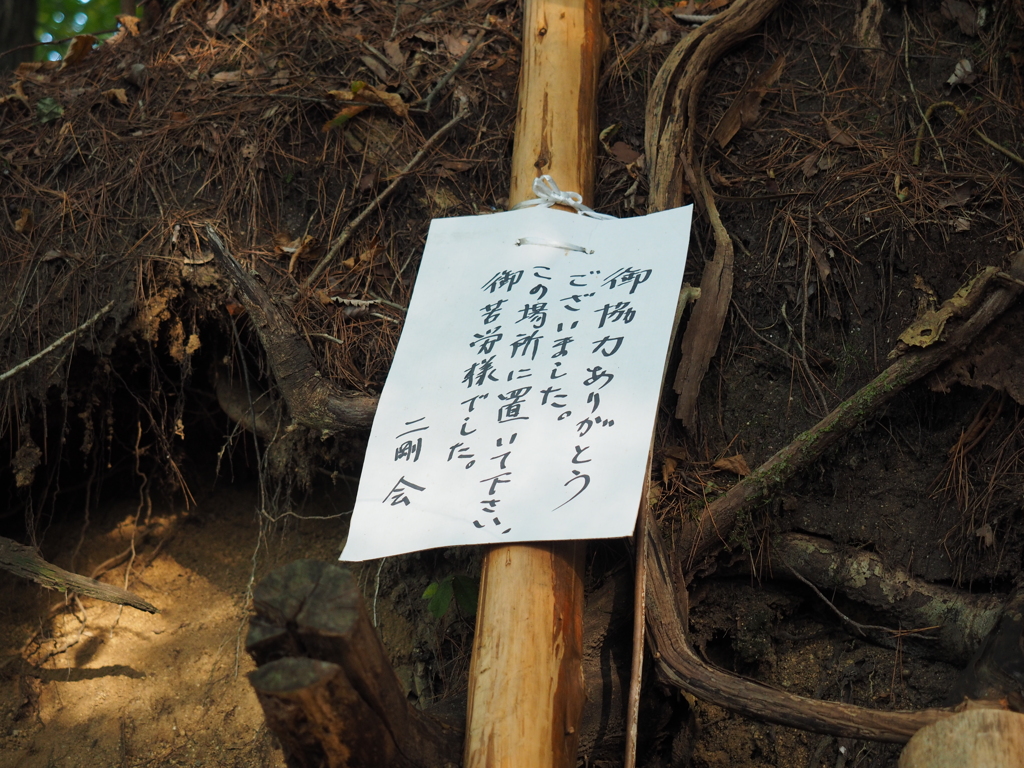 御協力ありがとう
ございました。
この場所に置いて下さい、
御苦労様でした。
二剛会